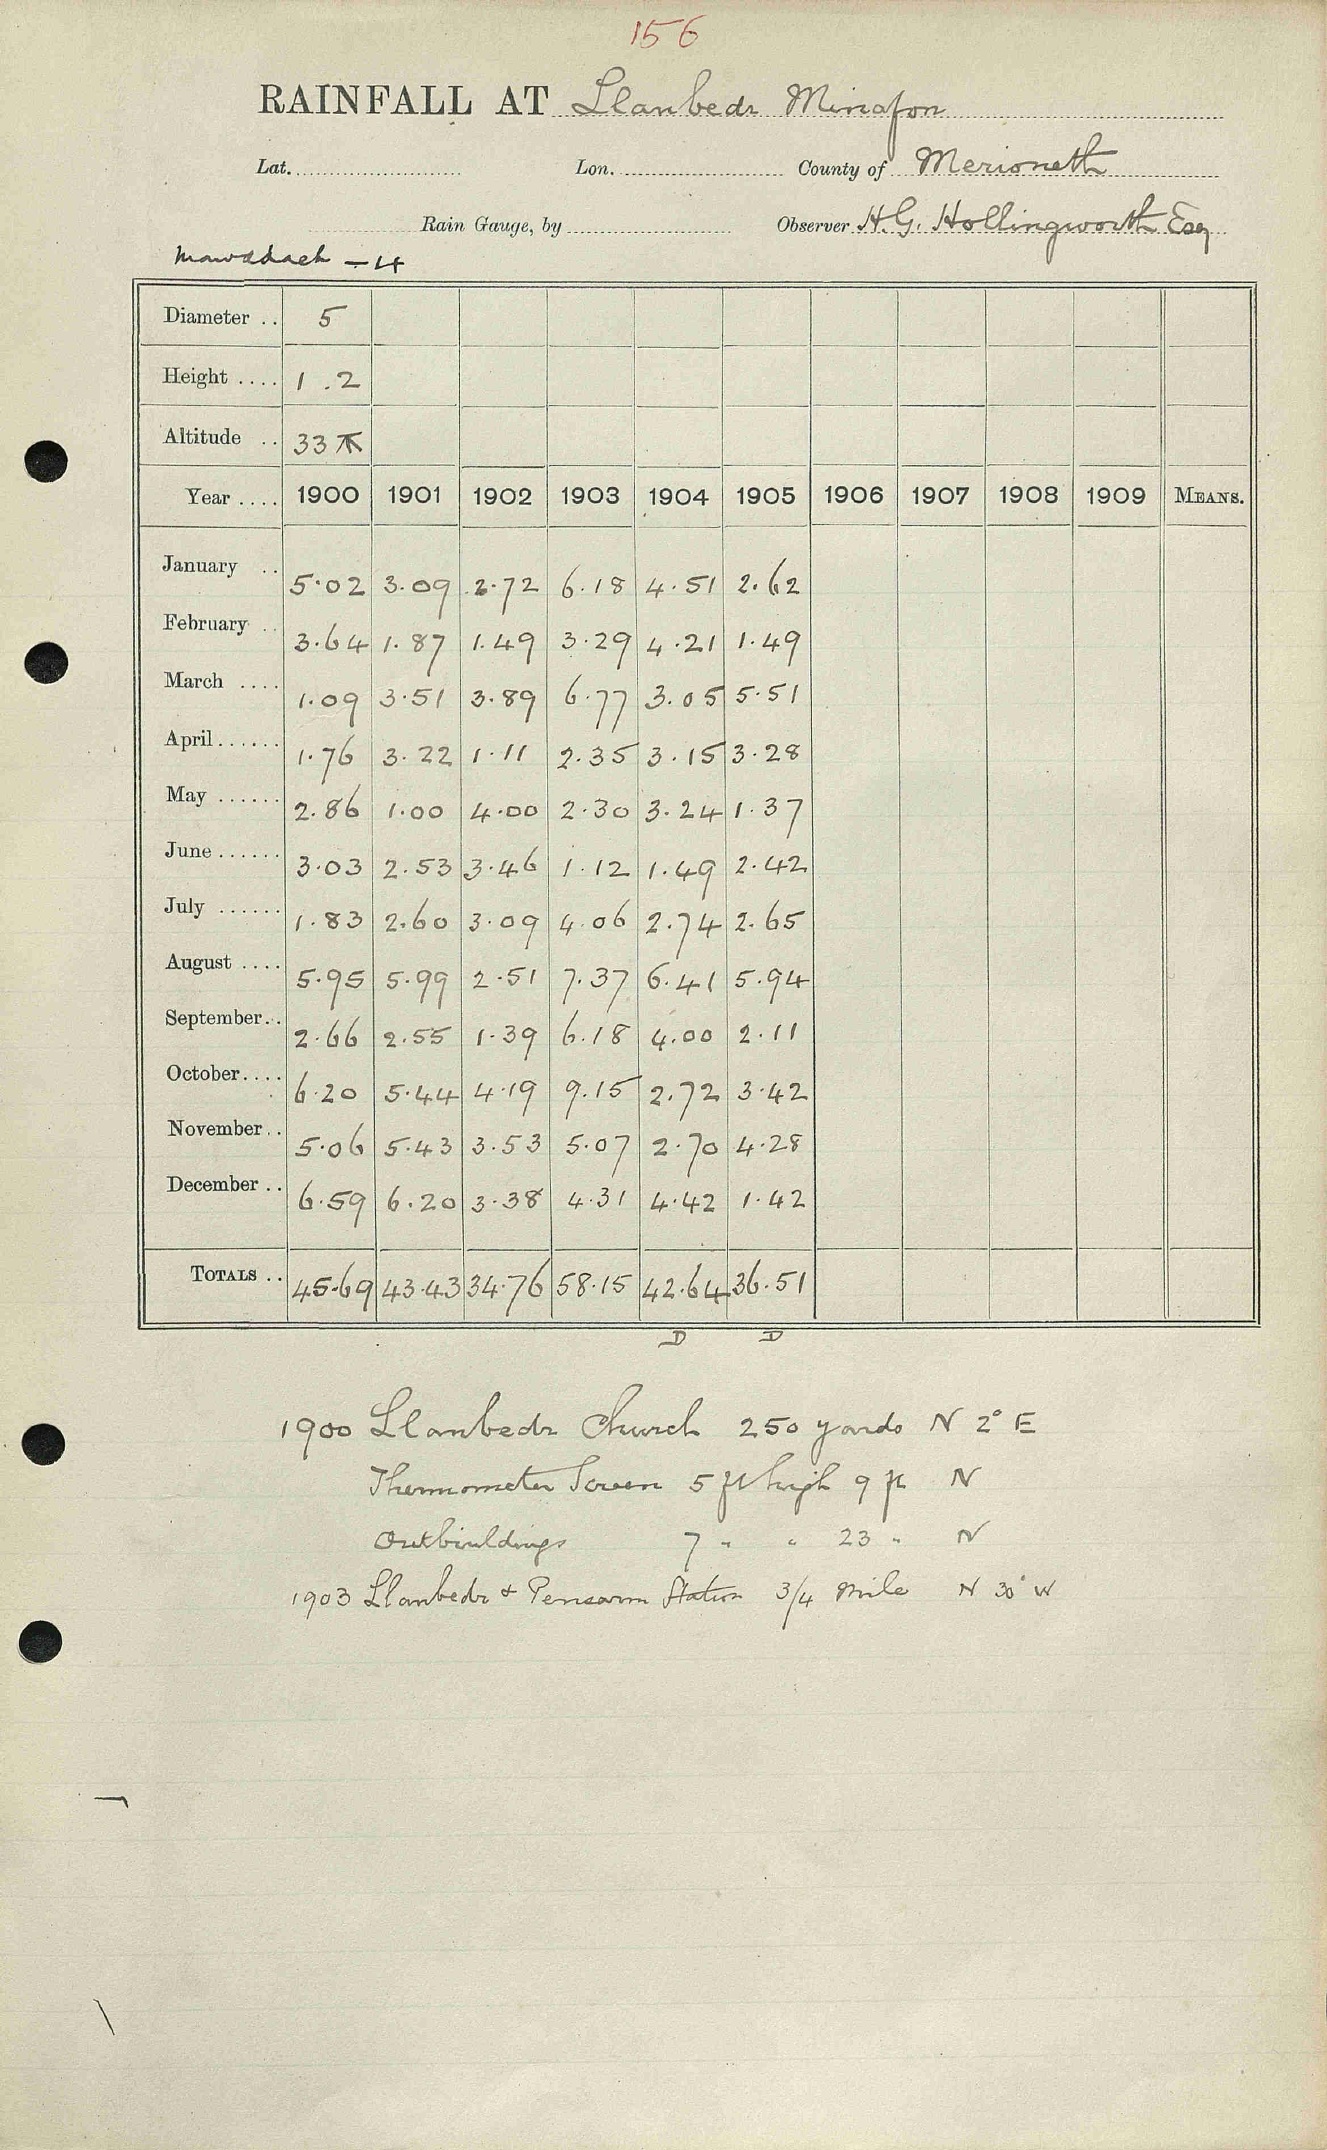 156
RAINFALL AT Llanbedr Minafon
Lat. Lon. County of Merioneth
Rain Gauge, by Observer H.G. Hollingworth Esq
Mawddach – 4
Diameter .. 5
Height .... 1 . 2
Altitude .. 33
Year .... 1900 1901 1902 1903 1904 1905 1906 1907 1908 1909 MEANS.
January .. 5.02 3.09 2.72 6.18 4.51 2.62
February .. 3.64 1.87 1.49 3.29 4.21 1.49
March .... 1.09 3.51 3.89 6.77 3.05 5.51
April ...... 1.76 3.22 1.11 2.35 3.15 3.28
May ...... 2.86 1.00 4.00 2.30 3.24 1.37
June ...... 3.03 2.53 3.46 1.12 1.49 2.42
July ...... 1.83 2.60 3.09 4.06 2.74 2.65
August .... 5.95 5.99 2.51 7.37 6.41 5.94
September .. 2.66 2.55 1.39 6.18 4.00 2.11
October .... 6.20 5.44 4.19 9.15 2.72 3.42
November .. 5.06 5.43 3.53 5.07 2.70 4.28
December .. 6.59 6.20 3.38 4.31 4.42 1.42
TOTALS .. 45.69 43.43 34.76 58.15 42.64 36.51
D D
1900 Llanbedr Church 250 yards N 2° E
Thermometer Screen 5 ft high 9 ft N
Outbuildings 7 " " 23 " N
1903 Llanbedr & Pensarn Station 3/4 mile N 30° W